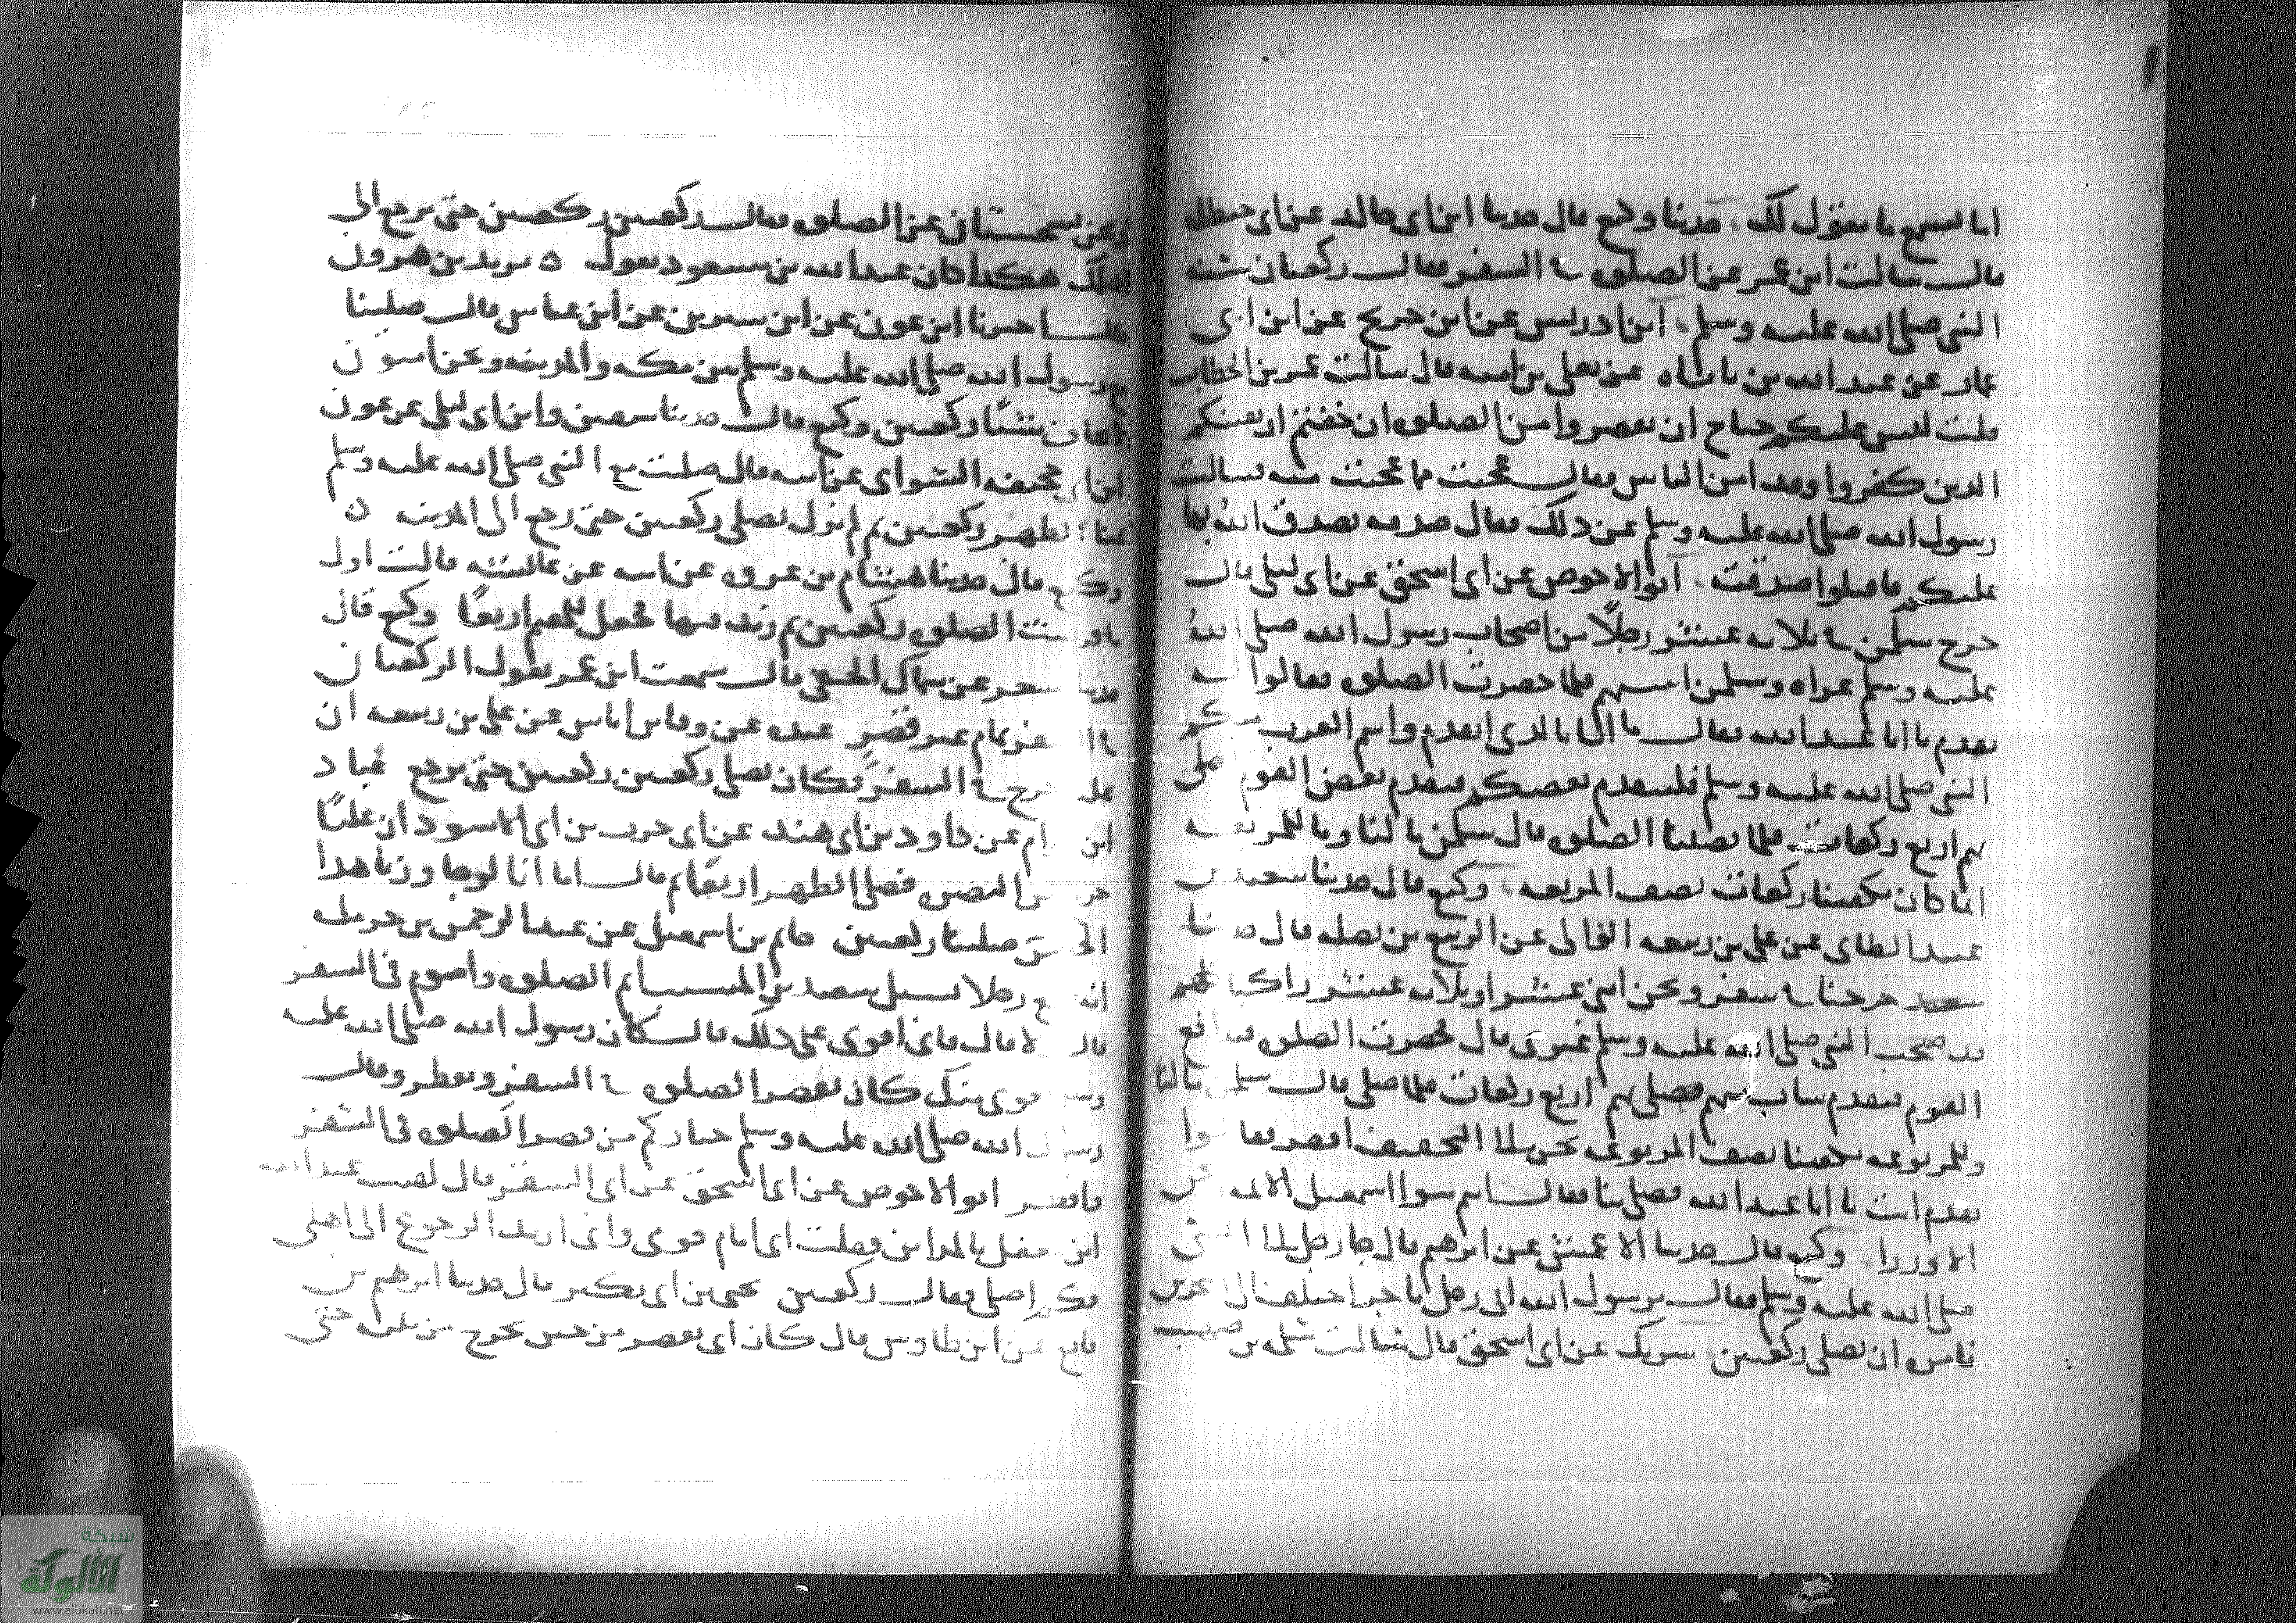 اما تسمع ما نقول لك حدثنا وكيع قال حدثنا ابن ابى خالد عن ابى حنظلة
قال سالت ابن عمر عن الصلوة فى السفر فقال ركعتان سنة
النبى صلى الله عليه وسلم ابن ادريس عن ابن جريج عن ابن ابى
عمار عن عبد الله بن باباه عن يعلى بن اميه قال سالت عمر بن الخطاب
قلت ليس عليكم جناح ان تقصروا من الصلوة ان خفتم ان يفتنكم
الذين كفروا وقد امن الناس فقال عجبت مما عجبت منه فسالت
رسول الله صلى الله عليه وسلم عن ذلك فقال صدقه تصدق الله بها
عليكم فاقبلوا صدقته ابو الاحوص عن ابى اسحق عن ابى ليلى قال
خرج سلمن فى ثلاثه عشر رجلا من اصحاب رسول الله صلى الله
عليه وسلم غزاه وسلمن اسنهم فلما حضرت الصلوة فقالوا له
تقدم يا ابا عبد الله فقال ما انا بالذى اتقدم وانتم العرب منكم
النبى صلى الله عليه وسلم فليتقدم بعضكم فتقدم بعض القوم فصلى
بهم اربع ركعات فلما قضينا الصلوة قال سلمن ما لنا وما للمربعه
انما كان يكفينا ركعات نصف المربعه وكيع قال حدثنا سعيد بن
عبيد الطاى عن على بن ربيعه الوالبى عن الربيع بن نضله قال
خرجنا فى سفر ونحن اثنى عشر او ثلاثه عشر راكبا كلهم
قد صحب النبى صلى الله عليه وسلم غيرى قال فحضرت الصلوة فتدافع
القوم فتقدم شاب منهم فصلى بهم اربع ركعات فلما صلى قال سلمن ما لنا
وللمربوعه يكفينا نصف المربوعه نحن الى التخفيف افقر فقالوا
تقدم انت يا ابا عبد الله فصل بنا فقال انتم بنوا اسمعيل الايمه ونحن
الوزرا وكيع قال حدثنا الاعمش عن ابرهيم قال جا رجل الى النبى
صلى الله عليه وسلم فقال يرسول الله انى رجل تاجر اختلف الى البحرين
فامره ان يصلى ركعتين شريك عن ابى اسحق قال سالت سلمه بن صهيب
ونحن بسجستان عن الصلوة فقال ركعتين ركعتين حتى ترجع الى
اهلك هكذا كان عبد الله بن مسعود يقول ه يزيد بن هرون
قال اخبرنا ابن عون عن ابن سيرين عن ابن عباس قال صلينا
مع رسول الله صلى الله عليه وسلم بين مكه والمدينه ونحن امنون
لا نخاف شيئًا ركعتين وكيع قال حدثنا سفين وابن ابى ليلى عن عون
ابن ابى جحيفه السوائى عن ابيه قال صليت مع النبى صلى الله عليه وسلم
بمنا الظهر ركعتين ثم لم يزل يصلى ركعتين حتى رجع الى المدينه ه
وكيع قال حدثنا هشام بن عروه عن ابيه عن عائشه قالت اول
ما فرضت الصلوة ركعتين ثم زيد فيها فجعل للمقيم اربعًا وكيع قال
حدثنا مسعر عن سماك الحنفى قال سمعت ابن عمر يقول الركعتان
فى السفر تمام غير قصر عبده عن وقاس اياس عن على بن ربيعه ان
عليا خرج فى السفر فكان يصلى ركعتين ركعتين حتى يرجع عباد
ابن العوام عن داود بن ابى هند عن ابى حرب بن ابى الاسود ان عليًا
خرج من البصره فصلى الظهر اربعًا ثم قال اما انا لو جاوزنا هذا
الخص صلينا ركعتين حاتم بن اسمعيل عن عبد الرحمن بن حرمله
انه سمع رجلا يسل سعيد بن المسيب اتم الصلوة واصوم فى السفر
قال لا قال فانى اقوى على ذلك قال كان رسول الله صلى الله عليه
وسلم اقوى منك كان يقصر الصلوة فى السفر ويفطر وقال
رسول الله صلى الله عليه وسلم خياركم من قصر الصلوة فى السفر
وافطر ابو الاحوص عن ابى اسحق عن ابى السفر قال لقيت عبد الله
ابن مغفل بالمداين فقلت انى امام قومى وانى اريد الرجوع الى اهلى
فكم اصلى فقال ركعتين يحيى بن ابى بكير قال حدثنا ابرهيم بن
نافع عن ابن طاوس قال كان ابى يقصر من حين يخرج من بيته حتى
شبكة
الألوكة
www.alukah.net